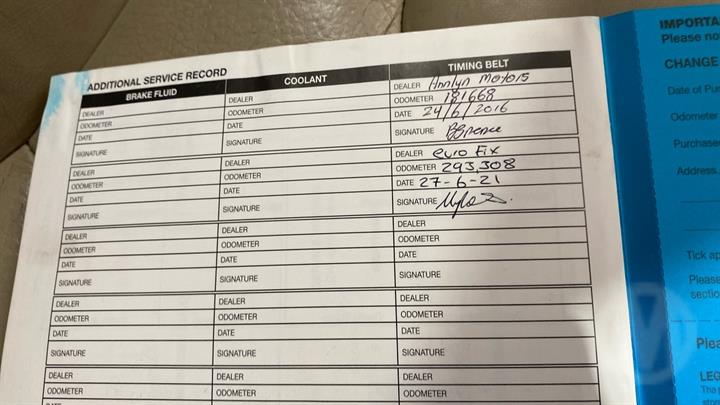 ADDITIONAL SERVICE RECORD
BRAKE FLUID
COOLANT
TIMING BELT
DEALER
DEALER
DEALER Annlyn Motors
ODOMETER
ODOMETER
ODOMETER 181668
DATE
DATE
DATE 24/6/2016
SIGNATURE
SIGNATURE
SIGNATURE
DEALER
DEALER
DEALER euro Fix
ODOMETER
ODOMETER
ODOMETER 293,308
DATE
DATE
DATE 27-6-21
SIGNATURE
SIGNATURE
SIGNATURE
DEALER
DEALER
DEALER
ODOMETER
ODOMETER
ODOMETER
DATE
DATE
DATE
SIGNATURE
SIGNATURE
SIGNATURE
DEALER
DEALER
DEALER
ODOMETER
ODOMETER
ODOMETER
DATE
DATE
DATE
SIGNATURE
SIGNATURE
SIGNATURE
DEALER
DEALER
DEALER
ODOMETER
ODOMETER
ODOMETER
IMPORTA
Please no
CHANGE
Date of Pur
Odometer
Purchase
Address
Tick ap
Please
sectio
Plea
LEG